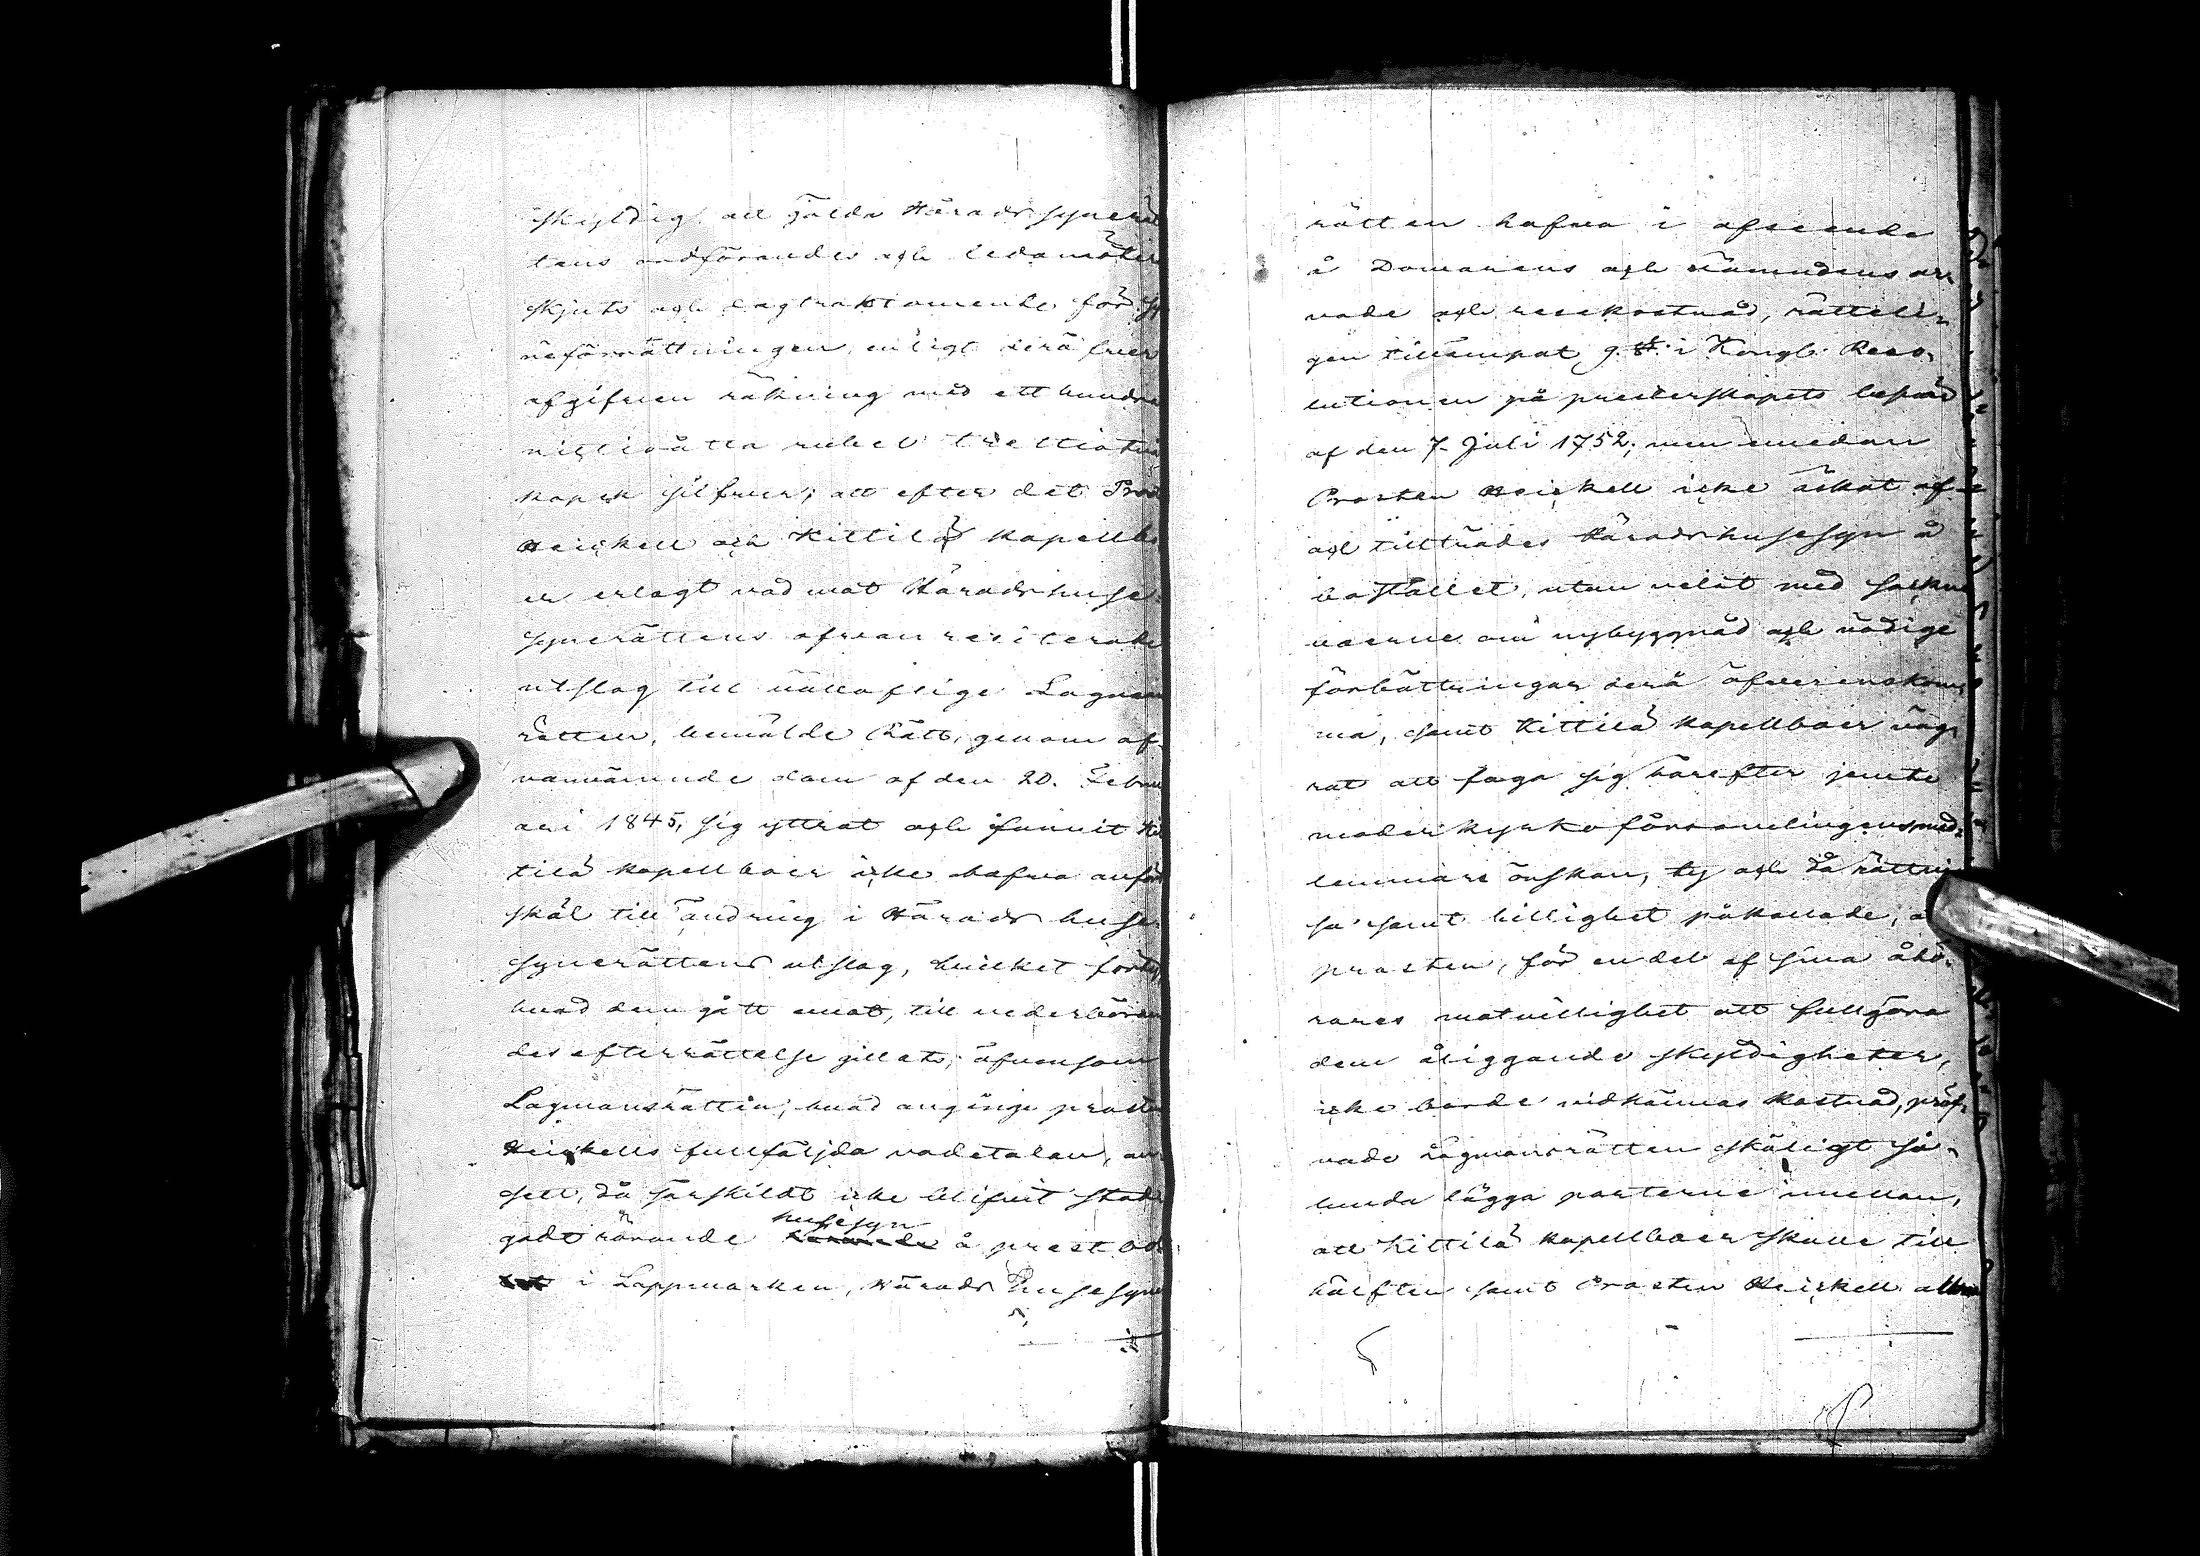 skyldig att gälda Häradssynerät
tens ordförandes och ledamöters
skjuts och dagtraktamente för sy
neförrättningen enligt derå fner
afgifven räkning med ett hundra
nittioåtta rubel trettiotvå
kopek silfver; att efter det Pros
Heickell och Kittilä kapellbo
er erlagt vad mot Häradshuse
synerättens ofvan reciterade
utslag till vällaflige Lagmans
rätten, bemälde Rätt, genom of
vannämnde dom af den 20. Febru
ari 1845, sig yttrat och funnit Kit
tilä kapellboer icke hafva anfört
skäl till ändring i Härads huse
synerättens utslag, hvilket förty
hvad dem gått emot, till vederböran
des efterrättelse gillats; äfvensom
Lagmansrätten, hvad anginge prosten
Heickells fullföljda vadetalan, an
sett, då särskildt icke blifvit stad
gadt rörande husesyn å prestbol
i Lappmarken, Härads Husesyne
rätten hafva i afseende
å Domarens och nämndens ar
vode och resekostnad, rätteli-
gen tillämpat 9. §. i Kongl. Reso-
lutionen på presterskapets besvär
af den 7. Juli 1752; men emedan
Prosten Heickell icke äskat af
och tillträdes Häradshusesyn å
bostället, utan velat med sockne
boerne om nybyggnad och nödige
förbättringar derå öfverenskom
ma, samt Kittilä kapellboer väg
rat att foga sig härefter jemte
moderkyrkoförsamlingens med-
lemmars önskan, ty och då rättvi
sa samt billighet påkallade, a
prosten, för en del af sina åhö-
rares motvillighet att fullgöra
dem åliggande skyldigheter,
icke borde vidkännas kostnad, pröf-
vade Lagmansrätten skäligt så-
lunda lägga parterne imellan,
att Kittilä kapellboer skulle till
hälften samt Prosten Heickell allm